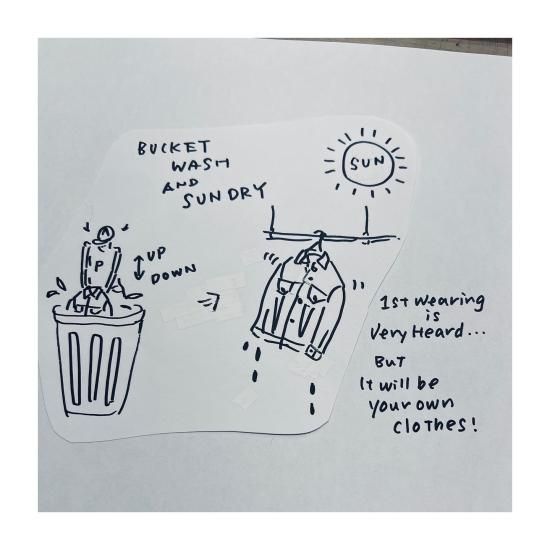 BUCKET
WASH
AND
SUN DRY
SUN
P
UP
DOWN
1st wearing
is
Very Heard...
BUT
It will be
your own
clothes!